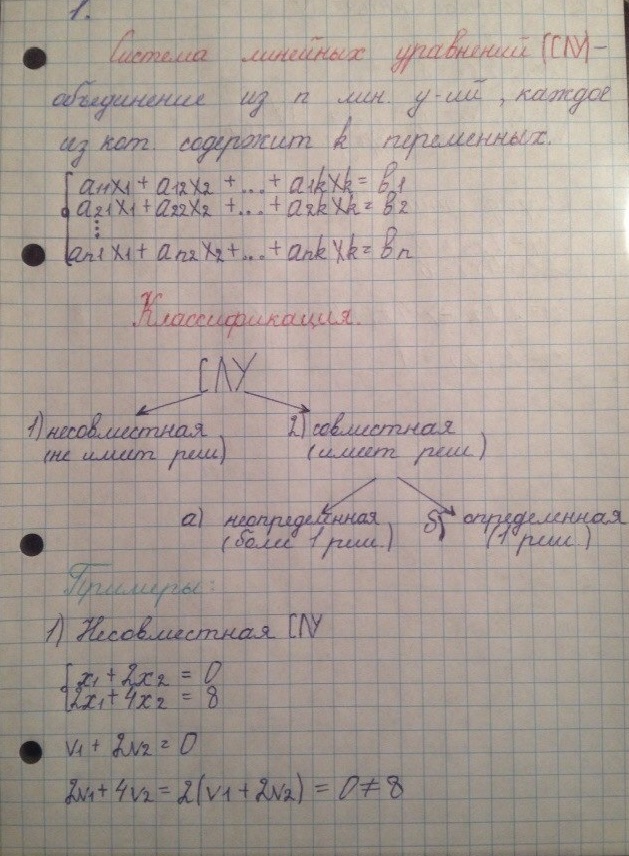 1.
Система линейных уравнений (СЛУ) -
объединение из n лин. у-ий, каждое
из кот. содержит k переменных.
a11x1 + a12x2 + ... + a1kxk = b1
a21x1 + a22x2 + ... + a2kxk = b2
⋮
an1x1 + an2x2 + ... + ankxk = bn
Классификация.
СЛУ
1) несовместная 2) совместная
(не имеет реш) (имеет реш)
а) неопределенная б) определенная
(более 1 реш.) (1 реш.)
Примеры:
1) Несовместная СЛУ
x1 + 2x2 = 0
2x1 + 4x2 = 8
v1 + 2v2 = 0
2v1 + 4v2 = 2(v1 + 2v2) = 0 ≠ 8